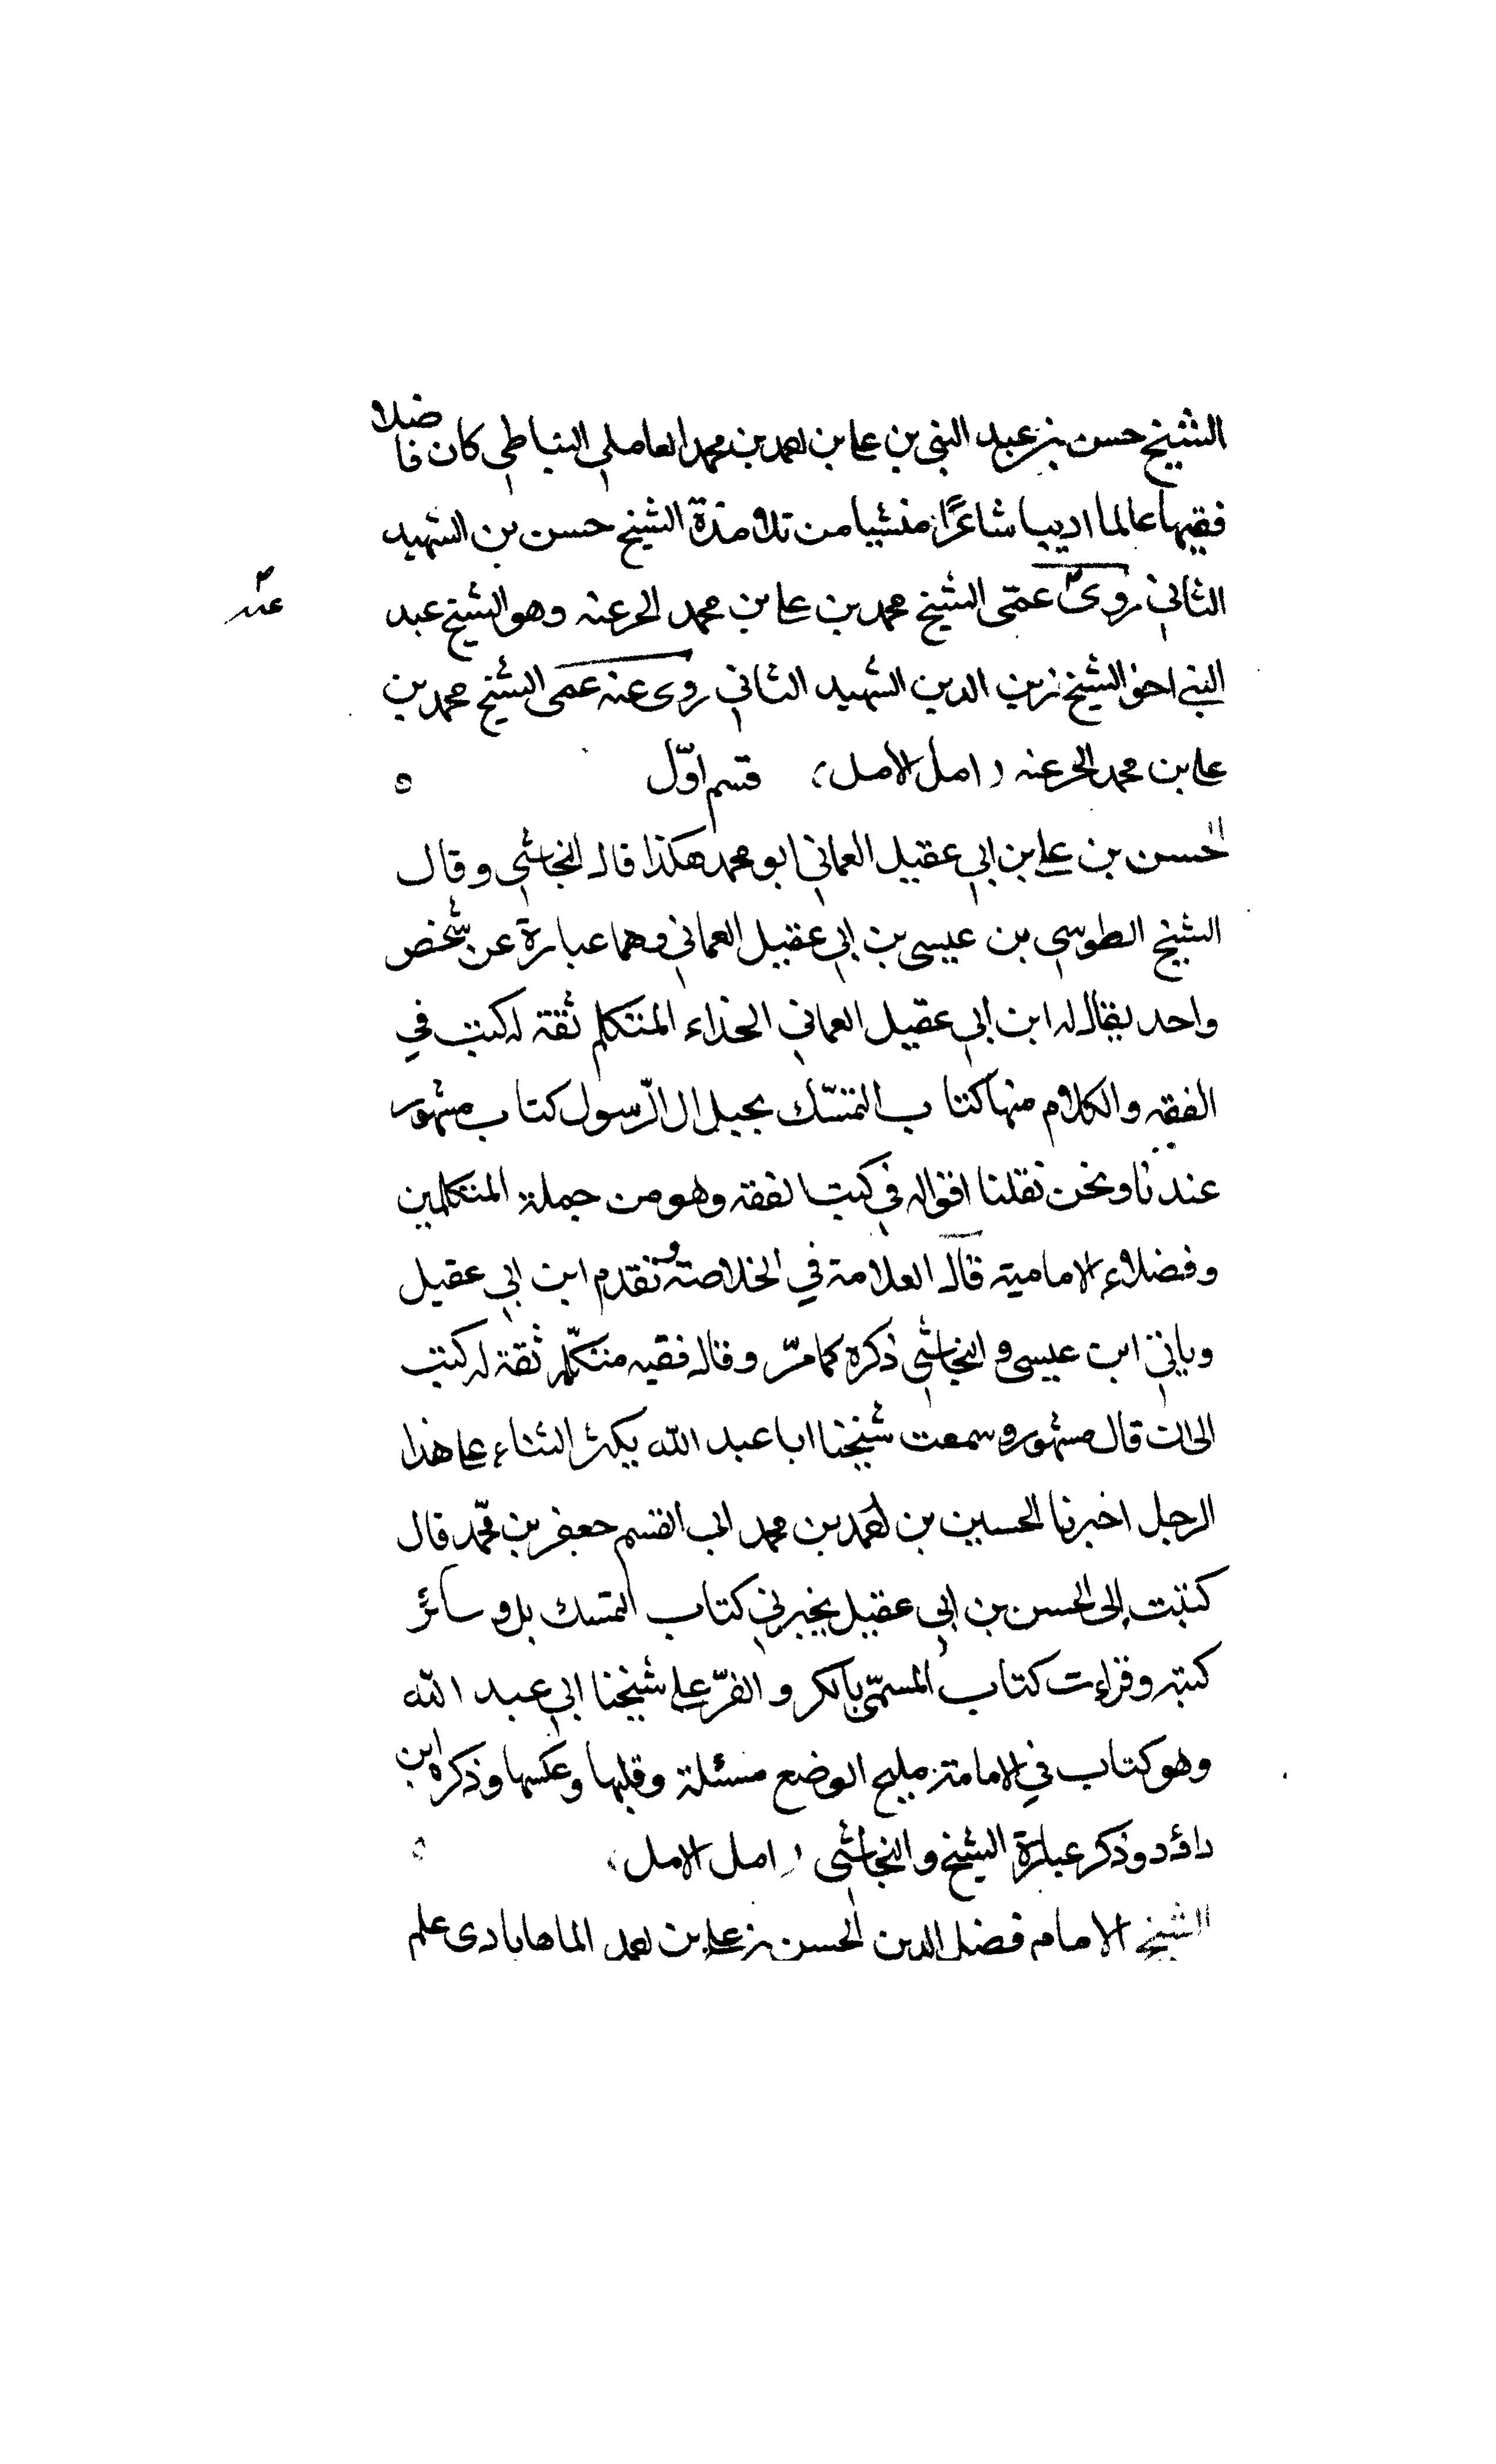 الشيخ حسن بن عبد النبي بن علي بن احمد بن محمد العاملي النباطي كان فاضلا
فقيها عالما اديبا شاعرًا منشيا من تلامذة الشيخ حسن بن الشهيد
الثاني روى عمّى الشيخ محمد بن علي بن محمد الحر عنه وهو الشيخ عبد
عنه
النبي اخو الشيخ زين الدين الشهيد الثاني روى عنه عمى الشيخ محمد بن
علي بن محمد الحر عنه ( امل الامل ) قسم اوّل ه
الحسن بن علي بن ابي عقيل العماني ابو محمد هكذا قال النجاشي وقال
الشيخ الطوسي بن عيسى بن ابي عقيل العماني وهما عبارة عن شخص
واحد يقال له ابن ابي عقيل العماني الحذاء المتكلم ثقة له كتب في
الفقه والكلام منها كتاب التمسّك بحبل ال الرّسول كتاب مشهور
عندنا ونحن نقلنا اقواله في كتب الفقه وهو من جملة المتكلمين
وفضلاء الامامية قال العلامة في الخلاصة وتقدم ابن ابي عقيل
وياتي ابن عيسى والنجاشي ذكره كما مرّ وقال فقيه متكلّم ثقة له كتب
الى ان قال مشهور وسمعت شيخنا ابا عبد الله يكثر الثناء على هذا
الرجل اخبرنا الحسين بن احمد بن محمد ابى القسم جعفر بن محمّد قال
كتبت إلى الحسن بن ابي عقيل يخبرني كتاب التمسك بل وسائر
كتبه وقراءت كتاب المسمّى بالكر والفرّ على شيخنا ابي عبد الله
وهو كتاب في الامامة مليح الوضع مسئلة وقلبها وعكسها وذكره ابن
داؤد وذكر عبارة الشيخ والنجاشي ( امل الامل ) ه
الشيخ الامام فضل الدين الحسن بن علي بن احمد الماهابادى علم